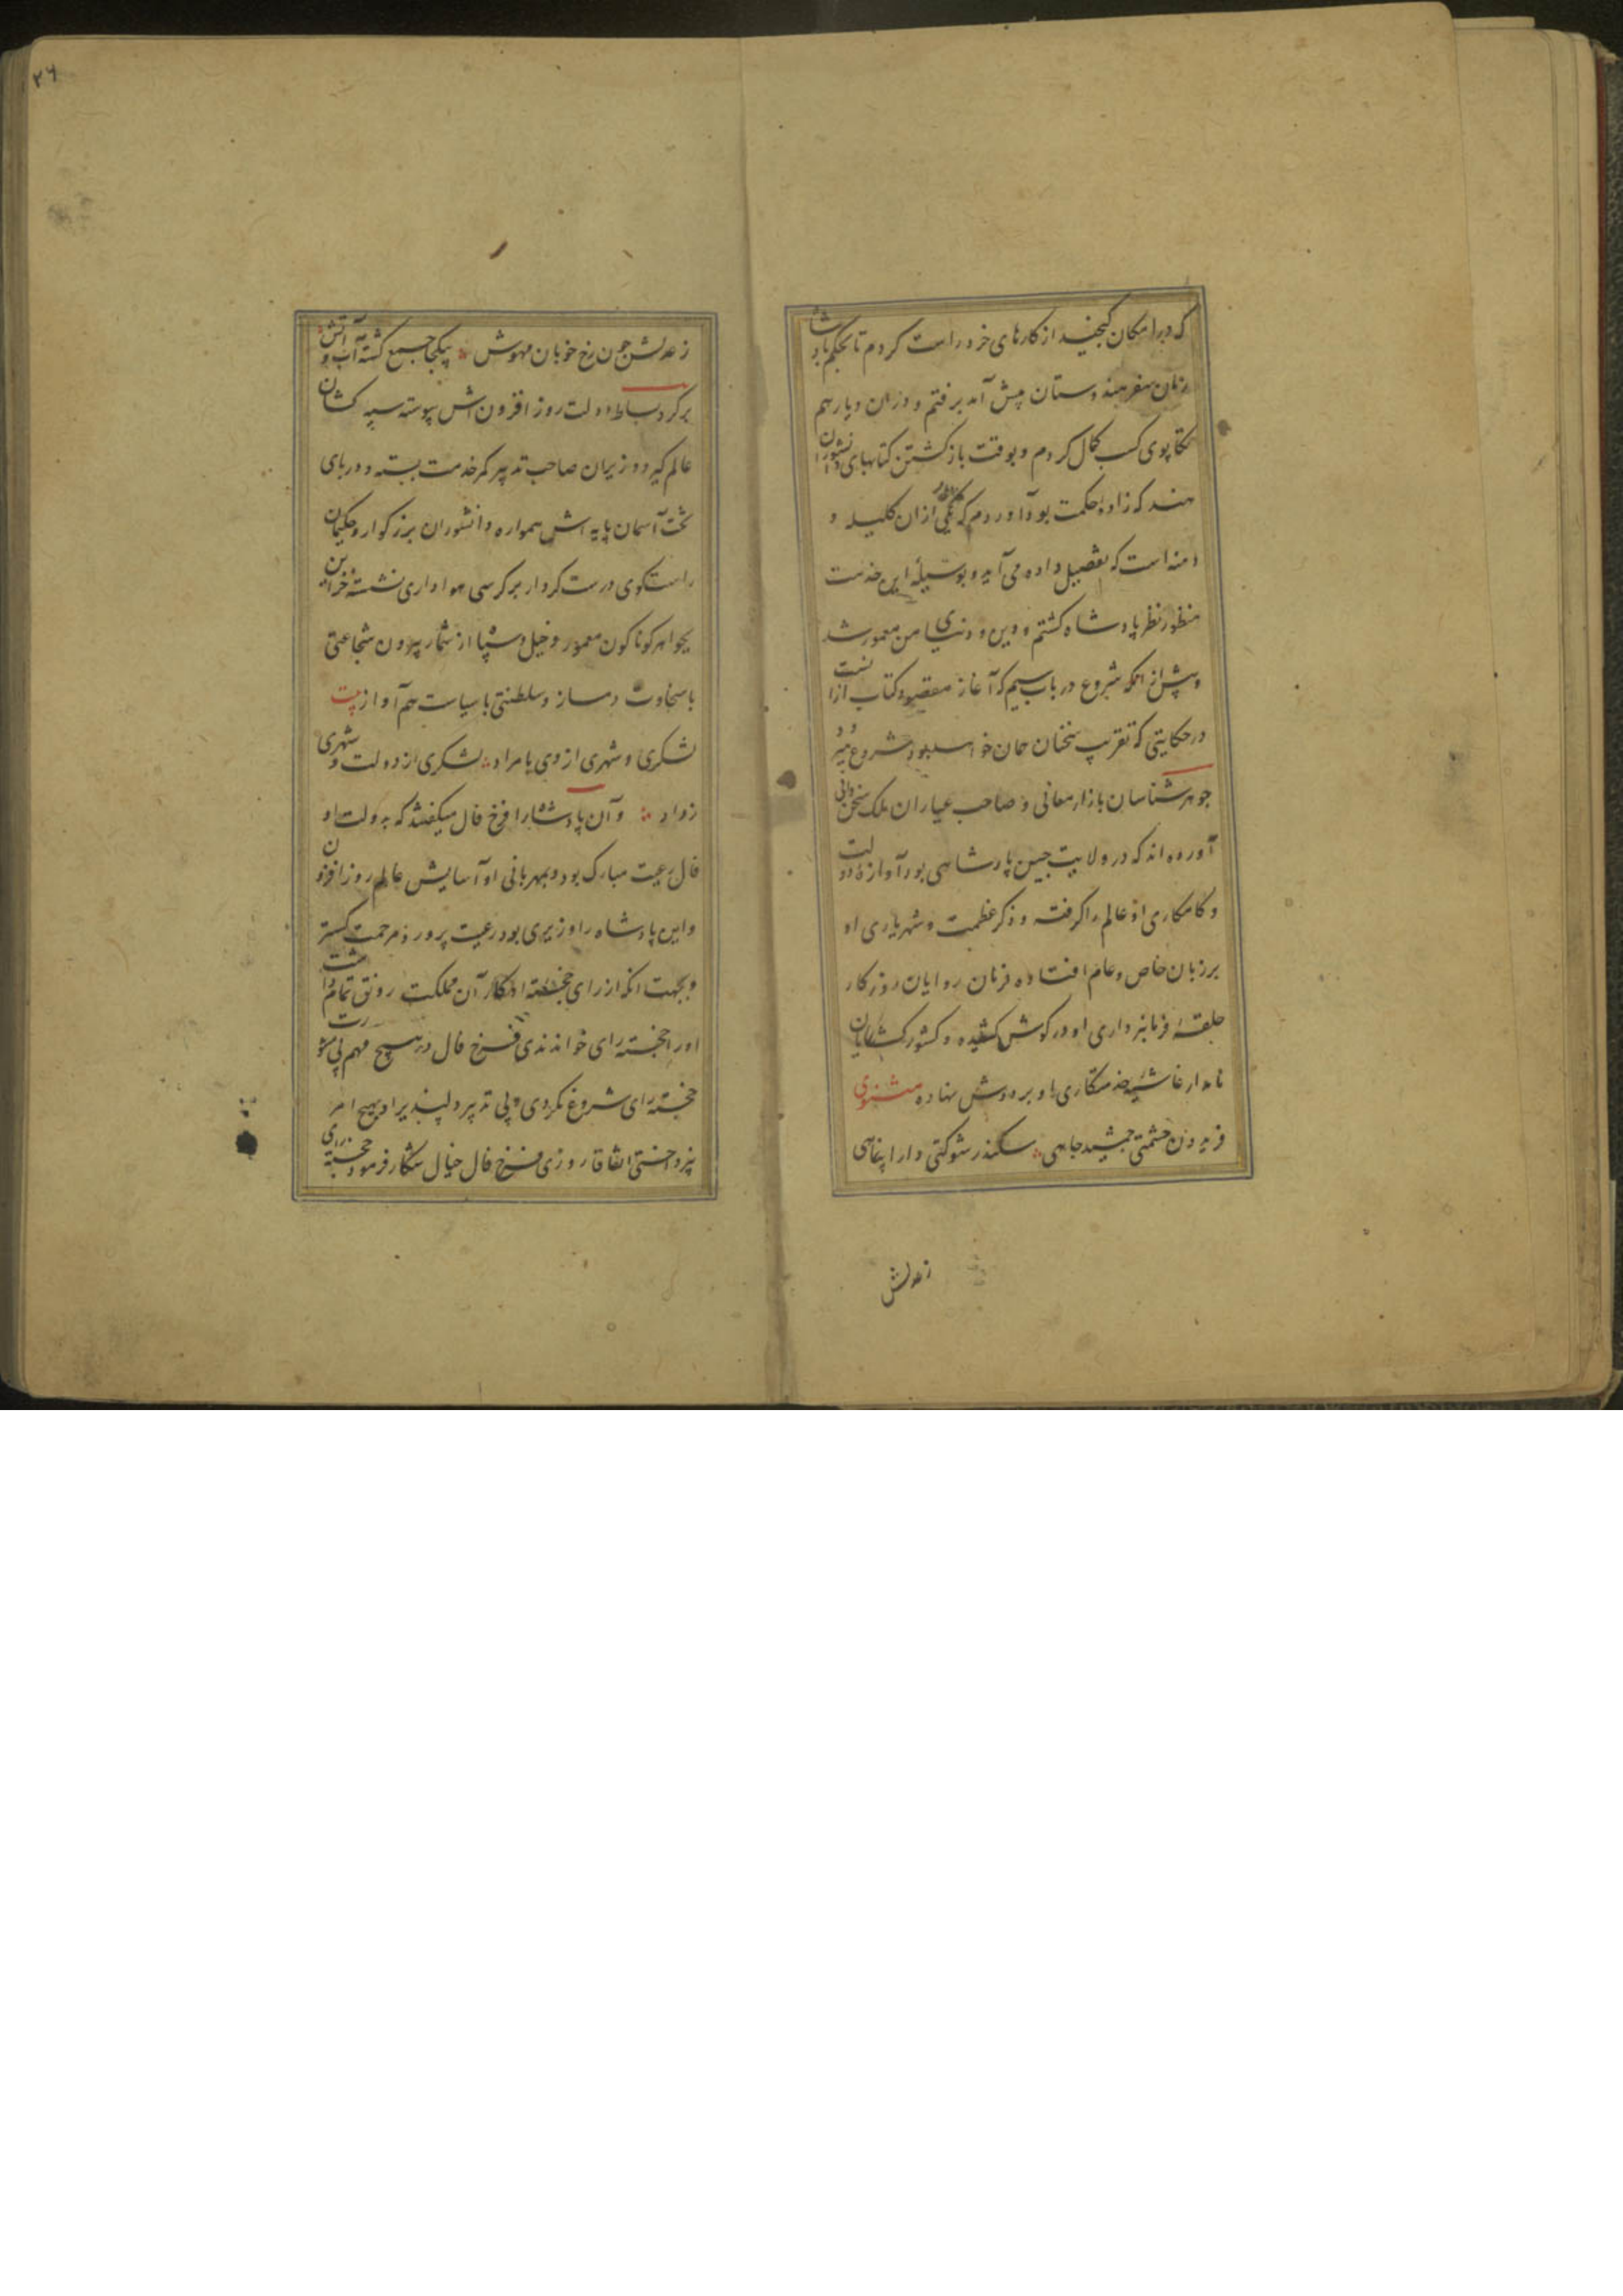 که در امکان گنجید از کارهای خرد راست کردم تا بحکم پادشا
زمان سفر هندوستان پیش آمد برفتم و دران دیار هم
تکاپوی کسب کمال کردم و بوقت بازکشتن کتابهای دانشوران
هند که زاده حکمت بود آوردم که یکی ازان کلیله و
دمنه است که بتفصیل داده می آید و بوسیله این خدمت
منظور نظر پادشاه کشتم و دین و دنیای من معمور شد
و پیش از انکه شروع در باب سیم که آغاز مقصود کتاب ازانست
در حکایتی که تقریب سخنان جهان خواهد بود شروع میرود
جوهر شناسان بازار معانی و صاحب عیاران ملک سخن دانی
آورده اند که در ولایت چین پادشاهی بود آوازه دولت
و کامکاری او عالم را کرفته و ذکر عظمت و شهریاری او
بر زبان خاص و عام افتاده فرمان روایان روزکار
حلقه فرمانبرداری او در کوش کشیده و کشورکشایان
نامدار غاشیه خدمتکاری او بر دوش نهاده مثنوی
فریدون حشمتی جمشید جاهی سکندر شوکتی دارا پناهی
زعدلش
۲۶
زعدلش چون رخ خوبان مهوش یکجا جمع کشته آب و آتش
بر کرد بساط دولت روز افزون اش پیوسته سپه کشان
عالم کیر و وزیران صاحب تدبیر کمر خدمت بسته و در پای
تخت آسمان پایه اش همواره دانشوران بزرکوار و حکیمان
راستکوی درست کردار بر کرسی هواداری نشسته خزاین
بجواهر کوناکون معمور و خیل و سپاه از شمار بیرون شجاعتی
با سخاوت دمساز و سلطنتی با سیاست هم آواز بیت
لشکری و شهری از وی با مراد لشکری از دولت و شهری
زداد و آن پادشاه را فرخ فال میکفتند که بدولت او
فال رعیت مبارک بود و بمهربانی او آسایش عالم روز افزون
و این پادشاه را وزیری بود رعیت پرور و مرحمت کستر
و بجهت انکه از رای خجسته او کار آن مملکت رونق تمام داشت
او را خجسته رای خواندندی فرخ فال در هیچ مهم بی مشورت
خجسته رای شروع نکردی و بی تدبیر دلپذیر او بهیچ امر
نپرداختی اتفاقا روزی فرخ فال خیال شکار فرمود خجسته رای